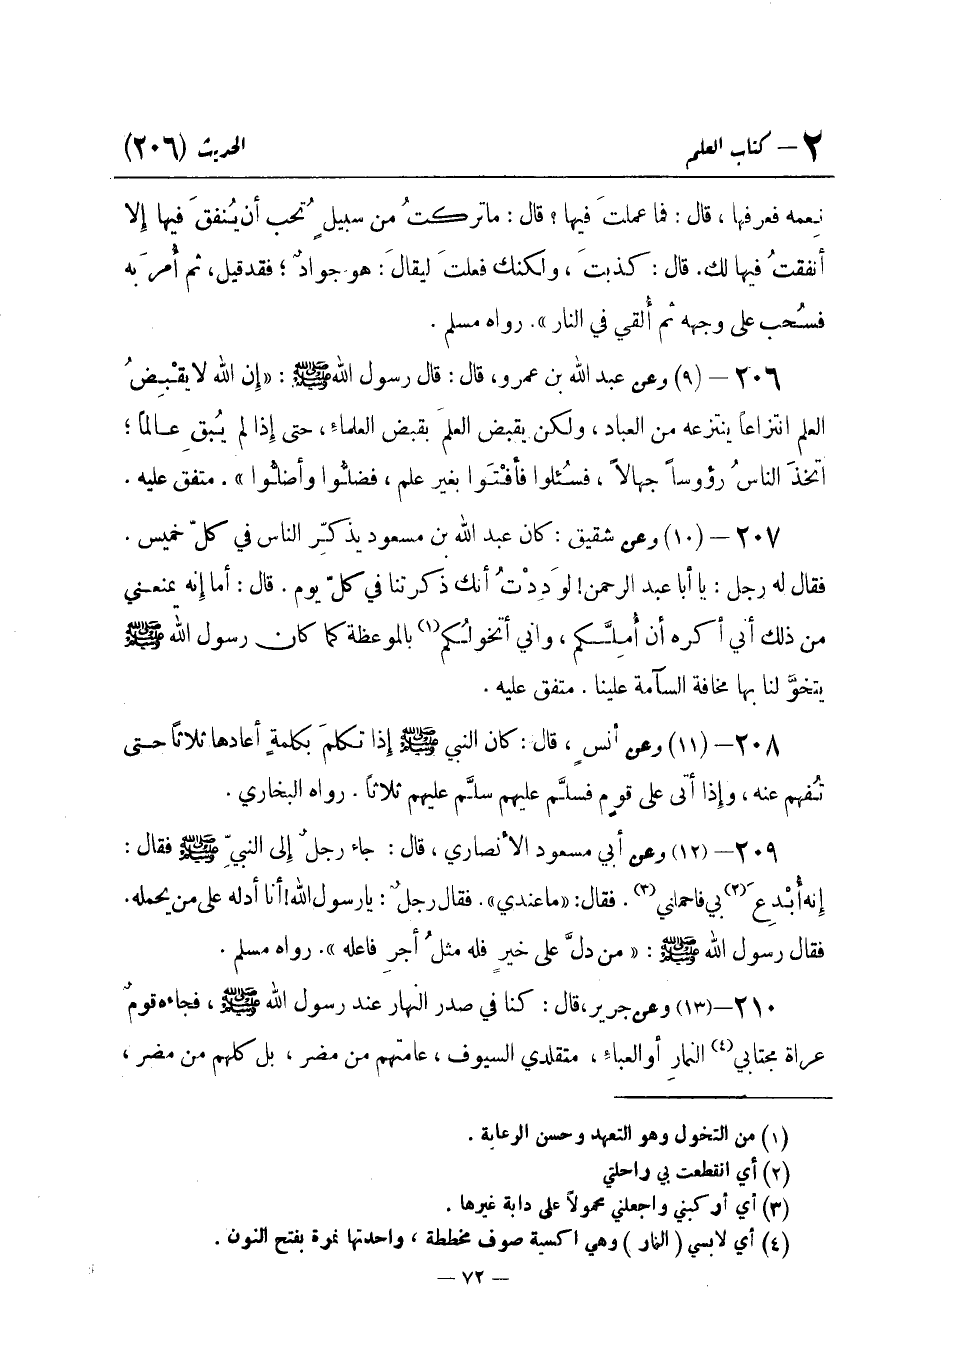 ٢ – كتاب العلم الحديث (٢٠٦)
نِعمه فعرفها ، قال : فما عملتَ فيها ؟ قال : ماتركتُ من سبيلٍ تُحب أن يُنفقَ فيها إلا
أنفقتُ فيها لك. قال : كذبتَ ، ولكنك فعلتَ ليقالَ : هو جوادٌ ؛ فقدقيل، ثم أُمرَ به
فسُحب على وجهه ثم أُلقي في النار ». رواه مسلم .
٢٠٦ – (٩) وعن عبد الله بن عمرو، قال : قال رسول الله ﷺ : «إن الله لا يقْبِضُ
العلم انتزاعاً ينتزعه من العباد ، ولكن يقبض العلمَ بقبض العلماء ، حتى إذا لم يُبقِ عالماً ؛
اتخذَ الناسُ رؤوساً جهالاً ، فسُئلوا فأفْتَوا بغير علم ، فضلُّوا وأضلُّوا » . متفق عليه .
٢٠٧ – (١٠) وعن شقيق : كان عبد الله بن مسعود يذكّر الناس في كلّ خميس .
فقال له رجل : يا أبا عبد الرحمن! لوَدِدْتُ أنك ذكرتنا في كلّ يوم . قال : أما إنه يمنعني
من ذلك أني أكره أن أُمِلَّكم ، واني أتخولُكم(١) بالموعظة كما كان رسول الله ﷺ
يتخوَّ لنا بها مخافة السآمة علينا . متفق عليه .
٢٠٨ – (١١) وعن أنسٍ ، قال : كان النبي ﷺ إذا تكلمَ بكلمةٍ أعادها ثلاثاً حتى
تُفهم عنه ، وإذا أتى على قومٍ فسلَّم عليهم سلَّم عليهم ثلاثاً . رواه البخاري .
٢٠٩ – (١٢) وعن أبي مسعود الأنصاري ، قال : جاء رجلٌ إلى النبيّ ﷺ فقال :
إنه أُبْدِعَ(٢) بي فاحملني(٣) . فقال: «ماعندي». فقال رجلٌ : يارسول الله! أنا أدله على من يحمله.
فقال رسول الله ﷺ : « من دلَّ على خيرٍ فله مثلُ أجرِ فاعله ». رواه مسلم .
٢١٠ – (١٣) وعن جرير ،قال : كنا في صدر النهار عند رسول الله ﷺ ، فجاءه قومٌ
عراة مجتابي(٤) النمارِ أو العباء ، متقلدي السيوف ، عامتهم من مضر ، بل كلهم من مضر ،
(١) من التخول وهو التعهد وحسن الرعاية .
(٢) أي انقطعت بي راحلتي
(٣) أي أركبني واجعلني محمولاً على دابة غيرها .
(٤) أي لابسي ( النمار ) وهي اكسية صوف مخططة ، واحدتها نمرة بفتح النون .
– ٧٢ –